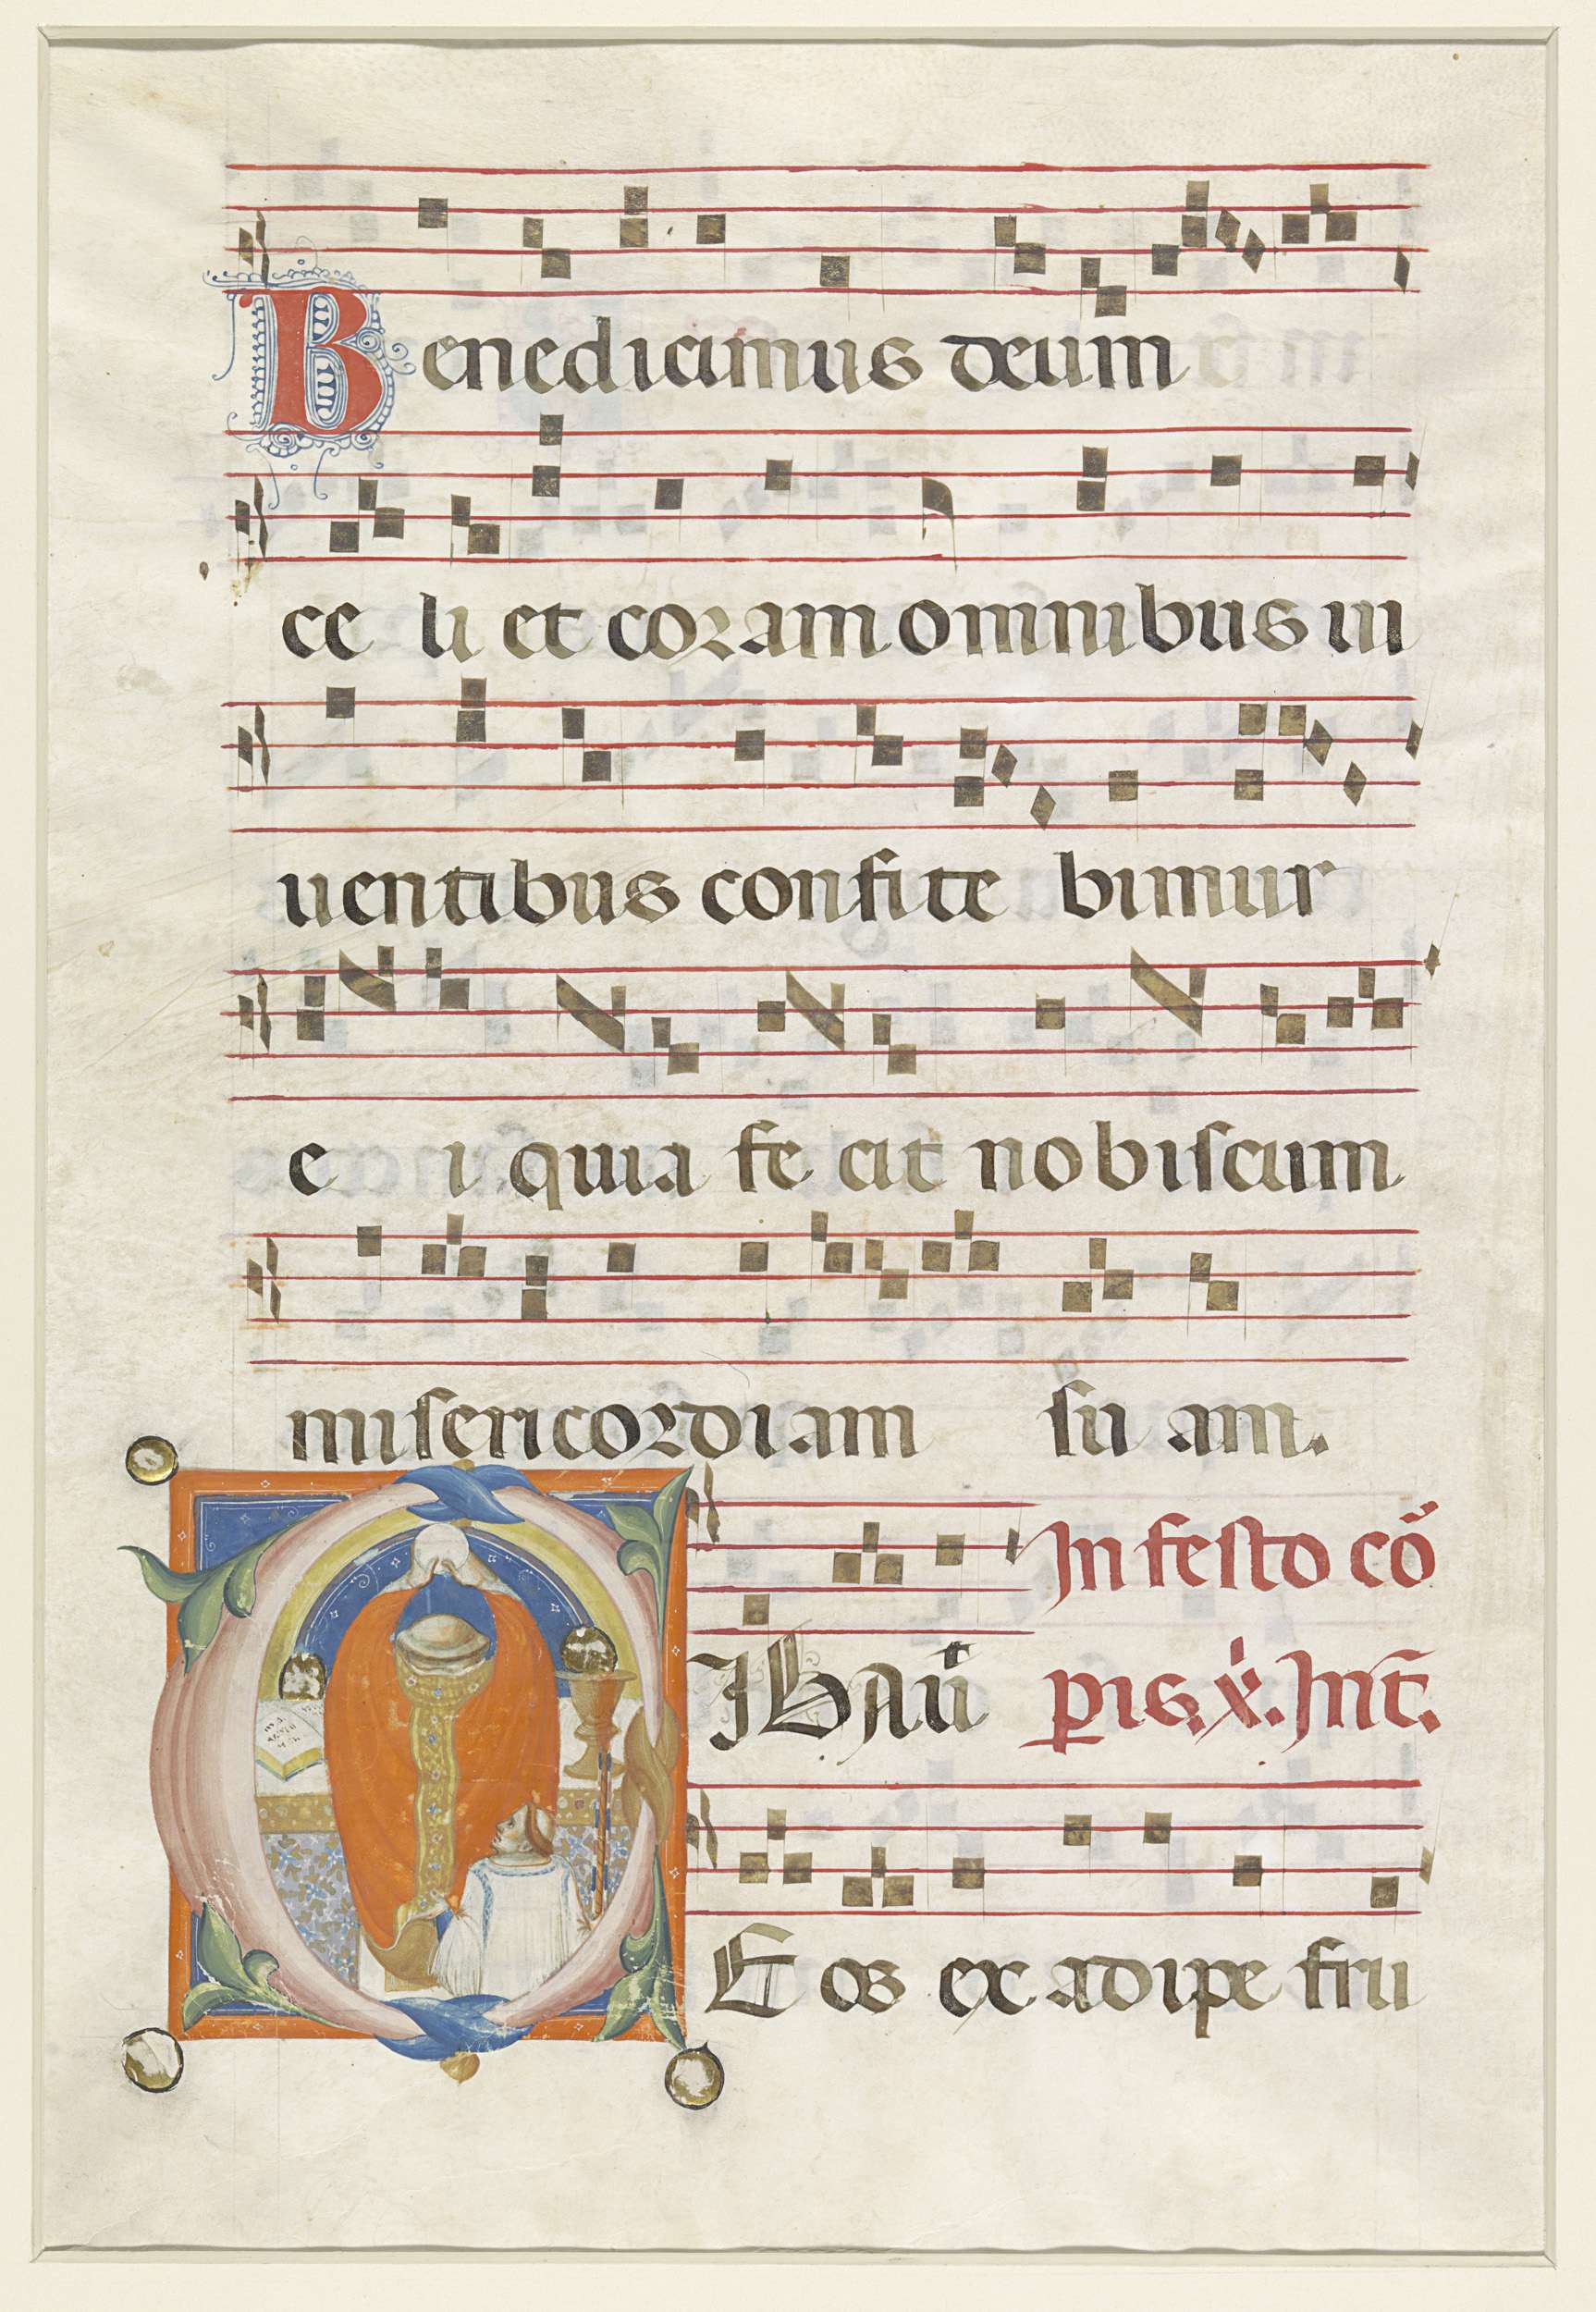 Benedicimus deum
ce li et coram omnibus ui
uentibus confite bimur
e i quia fe cit nobiscum
misericordiam su am.
In festo cō
CIBAU̅
pis. x̄. Int̄.
E os ex adipe fru